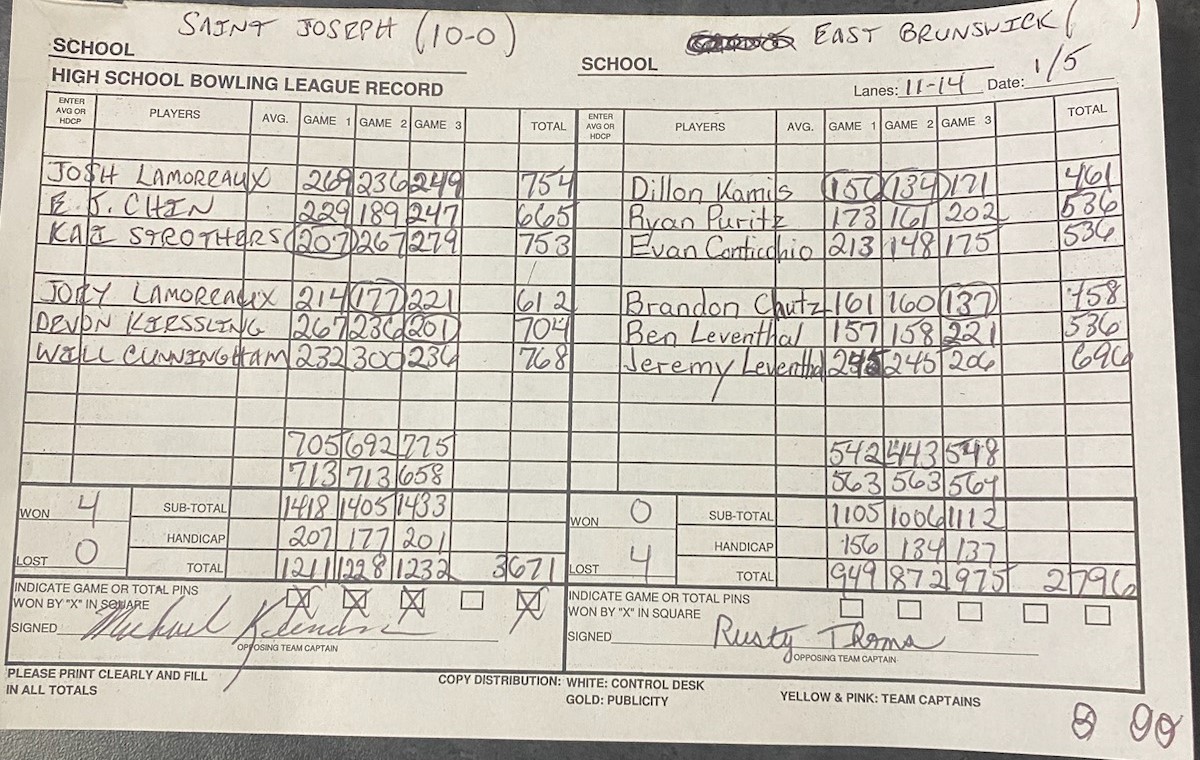 SAINT JOSEPH (10-0) EAST BRUNSWICK ( )
SCHOOL SCHOOL
HIGH SCHOOL BOWLING LEAGUE RECORD Lanes: 11-14 Date: 1/5
ENTER AVG OR HDCP PLAYERS AVG. GAME 1 GAME 2 GAME 3 TOTAL ENTER AVG OR HDCP PLAYERS AVG. GAME 1 GAME 2 GAME 3 TOTAL
JOSH LAMOREAUX 269 236 249 754 Dillon Kamis 156 134 171 461
E.J. CHIN 229 189 247 665 Ryan Puritz 173 161 202 536
KAI STROTHERS 207 267 279 753 Evan Conticchio 213 148 175 536
JORY LAMOREAUX 214 177 221 612 Brandon Chutz 161 160 137 458
DEVON KIESSLING 267 236 201 704 Ben Leventhal 157 158 221 536
WILL CUNNINGHAM 232 300 236 768 Jeremy Leventhal 245 245 206 696
705 692 775 542 443 548
713 713 658 563 563 564
WON 4 SUB-TOTAL 1418 1405 1433 WON 0 SUB-TOTAL 1105 1006 1112
HANDICAP 207 177 201 HANDICAP 156 134 137
LOST 0 TOTAL 1211 1228 1232 3671 LOST 4 TOTAL 949 872 975 2796
INDICATE GAME OR TOTAL PINS WON BY "X" IN SQUARE X X X X INDICATE GAME OR TOTAL PINS WON BY "X" IN SQUARE
SIGNED Michael SIGNED Rusty Thoma
OPPOSING TEAM CAPTAIN OPPOSING TEAM CAPTAIN
PLEASE PRINT CLEARLY AND FILL IN ALL TOTALS
COPY DISTRIBUTION: WHITE: CONTROL DESK
GOLD: PUBLICITY
YELLOW & PINK: TEAM CAPTAINS